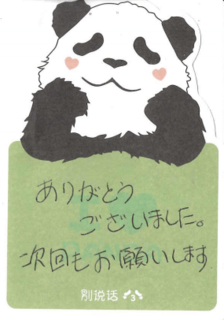 ありがとう
ございました。
次回もお願いします
别说话